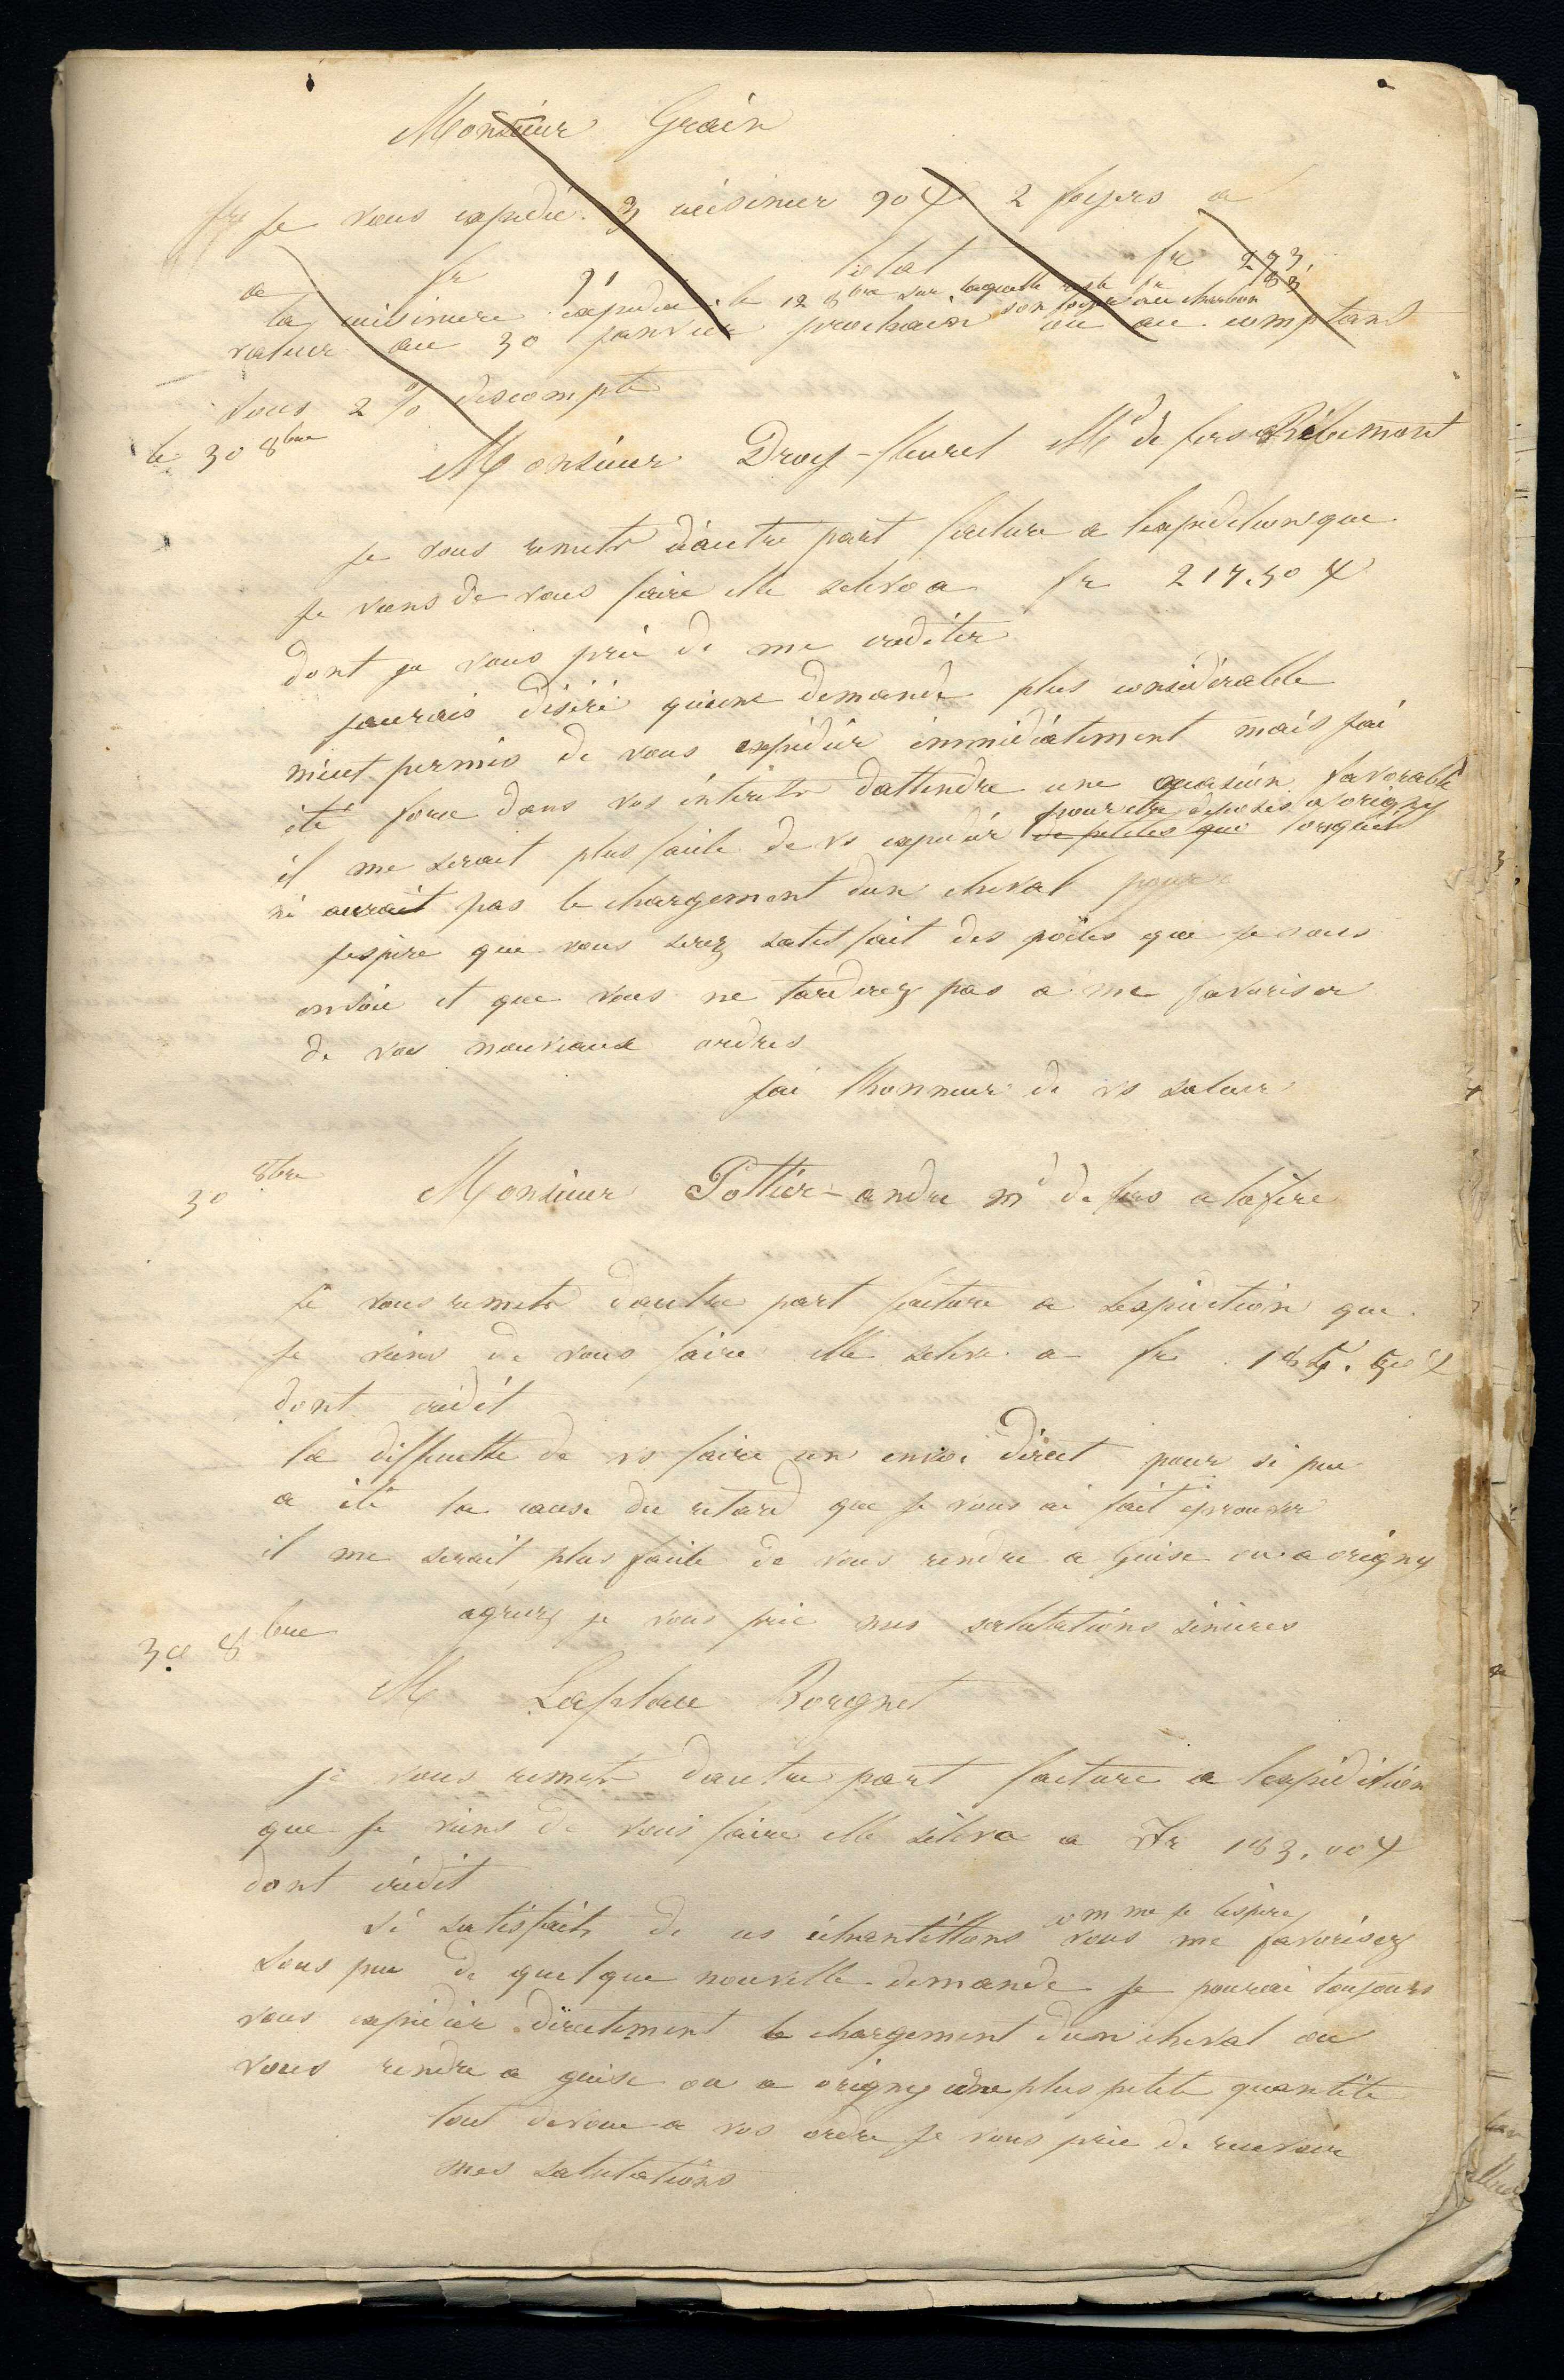 Monsieur Grain
Je vous expedie 3 cuisinier 90 2 foyers a
a fr 91 total fr 273.
la cuisiniere expediee le 12 8bre sur laquelle reste fr 83
son foyer au charbon
valeur au 30 janvier prochain ou au comptant
sous 2 % descompte
le 30 8bre
Monsieur Droy-fleuret Md de fers a Ribemont
Je vous remets d'autre part facture a lexpedition que
je viens de vous faire elle seleve a fr 217.50
dont je vous prie de me crediter
jaurais désiré quune demande plus considerable
m'eut permis de vous expédier immédiatement mais jai
été forcé dans vos intérêts dattendre une occasion favorable
pour etre deposés a origny
il me serait plus facile de vs expédier de petites que lorsquil
ni aurait pas le chargement dun cheval pour
jespère que vous serez satisfait des poëles que je vous
envoie et que vous ne tarderez pas a me favoriser
de vos nouveaux ordres
jai lhonneur de vs saluer
30 8bre
Monsieur Pottier-andre md de fers a lafere
Je vous remets dautre part facture a lexpédition que
je viens de vous faire elle seleve a fr
dont crédit
la difficulté de vs faire un envoi direct pour si peu
a été la cause du retard que je vous ai fait éprouver
il me serait plus facile de vous rendre a Guise ou a origny
agréez je vous prie mes salutations sincères
30 8bre
M Laplace Borgnet
je vous remets dautre part facture a lexpédition
que je viens de vous faire elle séleva a Fr 183.00
dont crédit
comme je lespère
Si satisfaits de ces échantillons vous me favorisez
sous peu de quelque nouvelle demande je pourai toujours
vous expédier directement le chargement dun cheval ou
vous rendre a guise ou a origny une plus petite quantité
tout dévoué a vos ordre je vous prie de recevoir
mes salutations